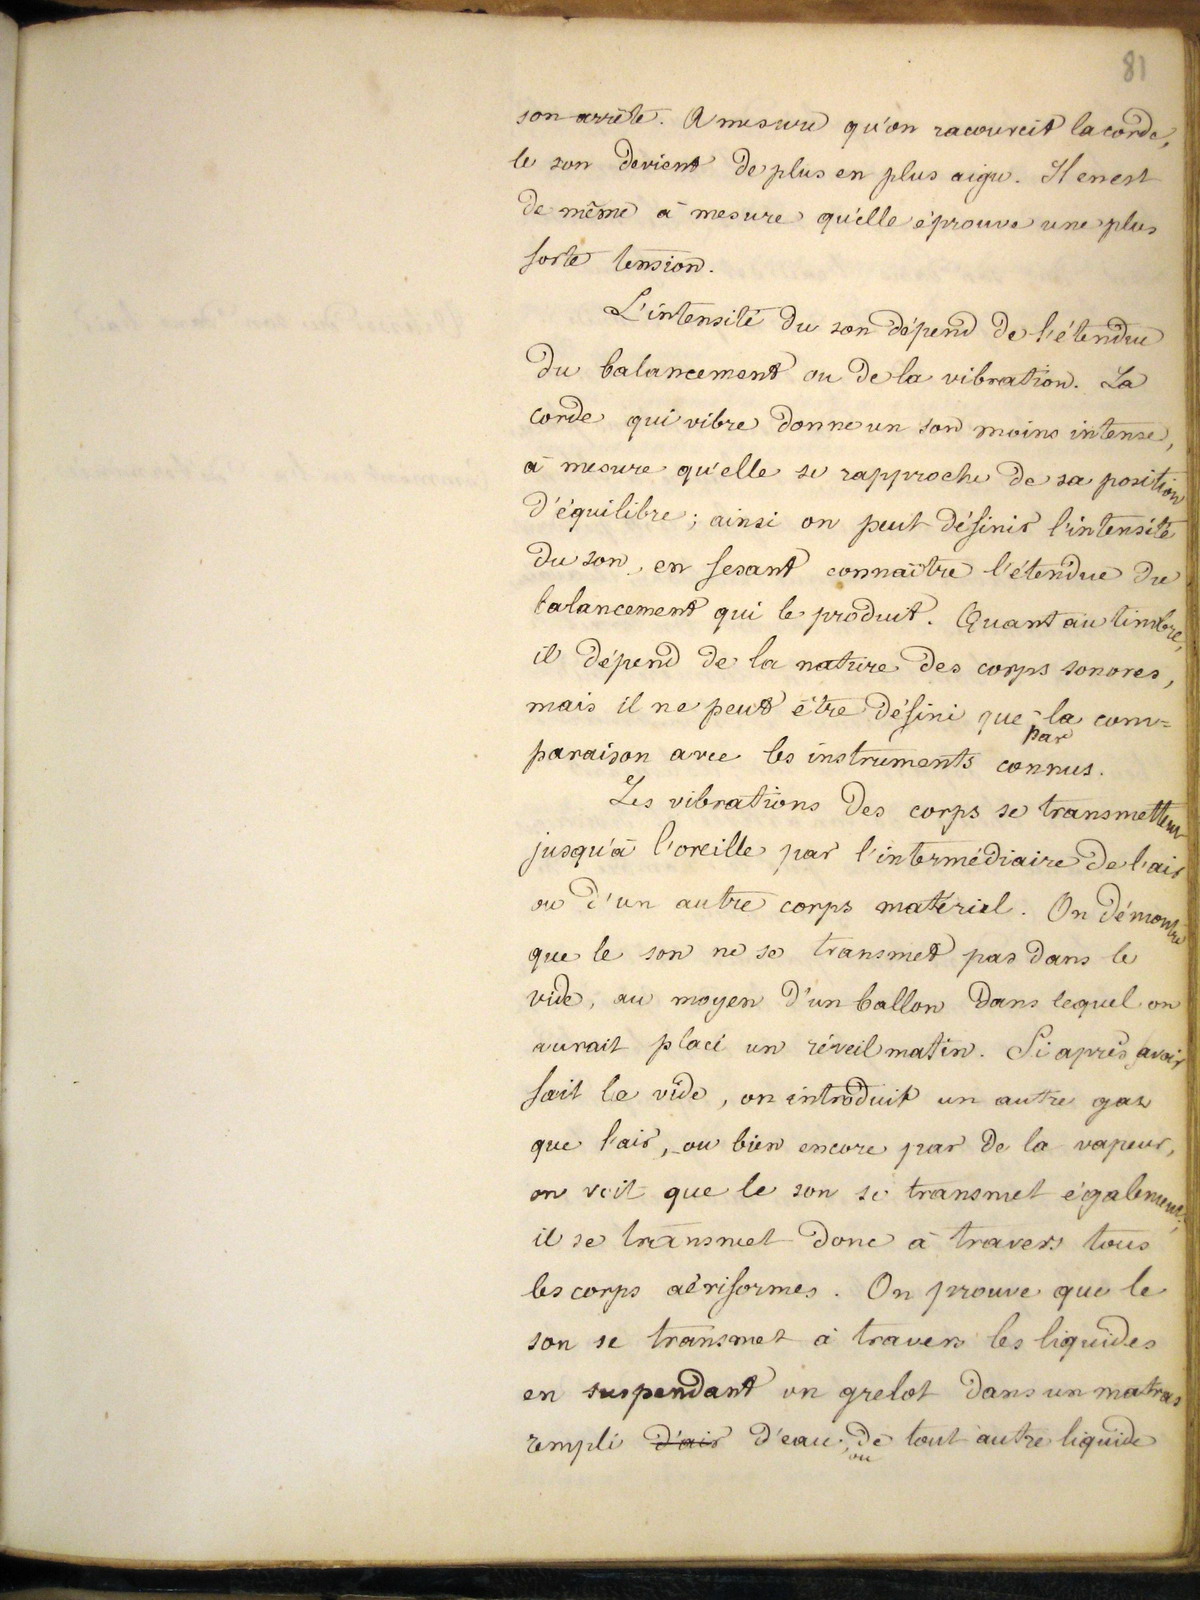 81
son arrête. A mesure qu'on racourcit la corde,
le son devient de plus en plus aigu. Il en est
de même à mesure qu'elle éprouve une plus
forte tension.
L'intensité du son dépend de l'étendue
du balancement ou de la vibration. La
corde qui vibre donne un son moins intense,
à mesure qu'elle se rapproche de sa position
d'équilibre ; ainsi on peut définir l'intensité
du son, en fesant connaître l'étendue du
balancement qui le produit. Quant au timbre,
il dépend de la nature des corps sonores,
mais il ne peut être défini que par la com=
paraison avec les instruments connus.
Les vibrations des corps se transmettent
jusqu'à l'oreille par l'intermédiaire de l'air
ou d'un autre corps matériel. On démontre
que le son ne se transmet pas dans le
vide, au moyen d'un ballon dans lequel on
aurait placé un réveil matin. Si après avoir
fait le vide, on introduit un autre gaz
que l'air, ou bien encore par de la vapeur,
on voit que le son se transmet également ;
il se transmet donc à travers tous
les corps aériformes. On prouve que le
son se transmet à travers les liquides
en suspendant un grelot dans un matras
rempli d'air d'eau, ou de tout autre liquide